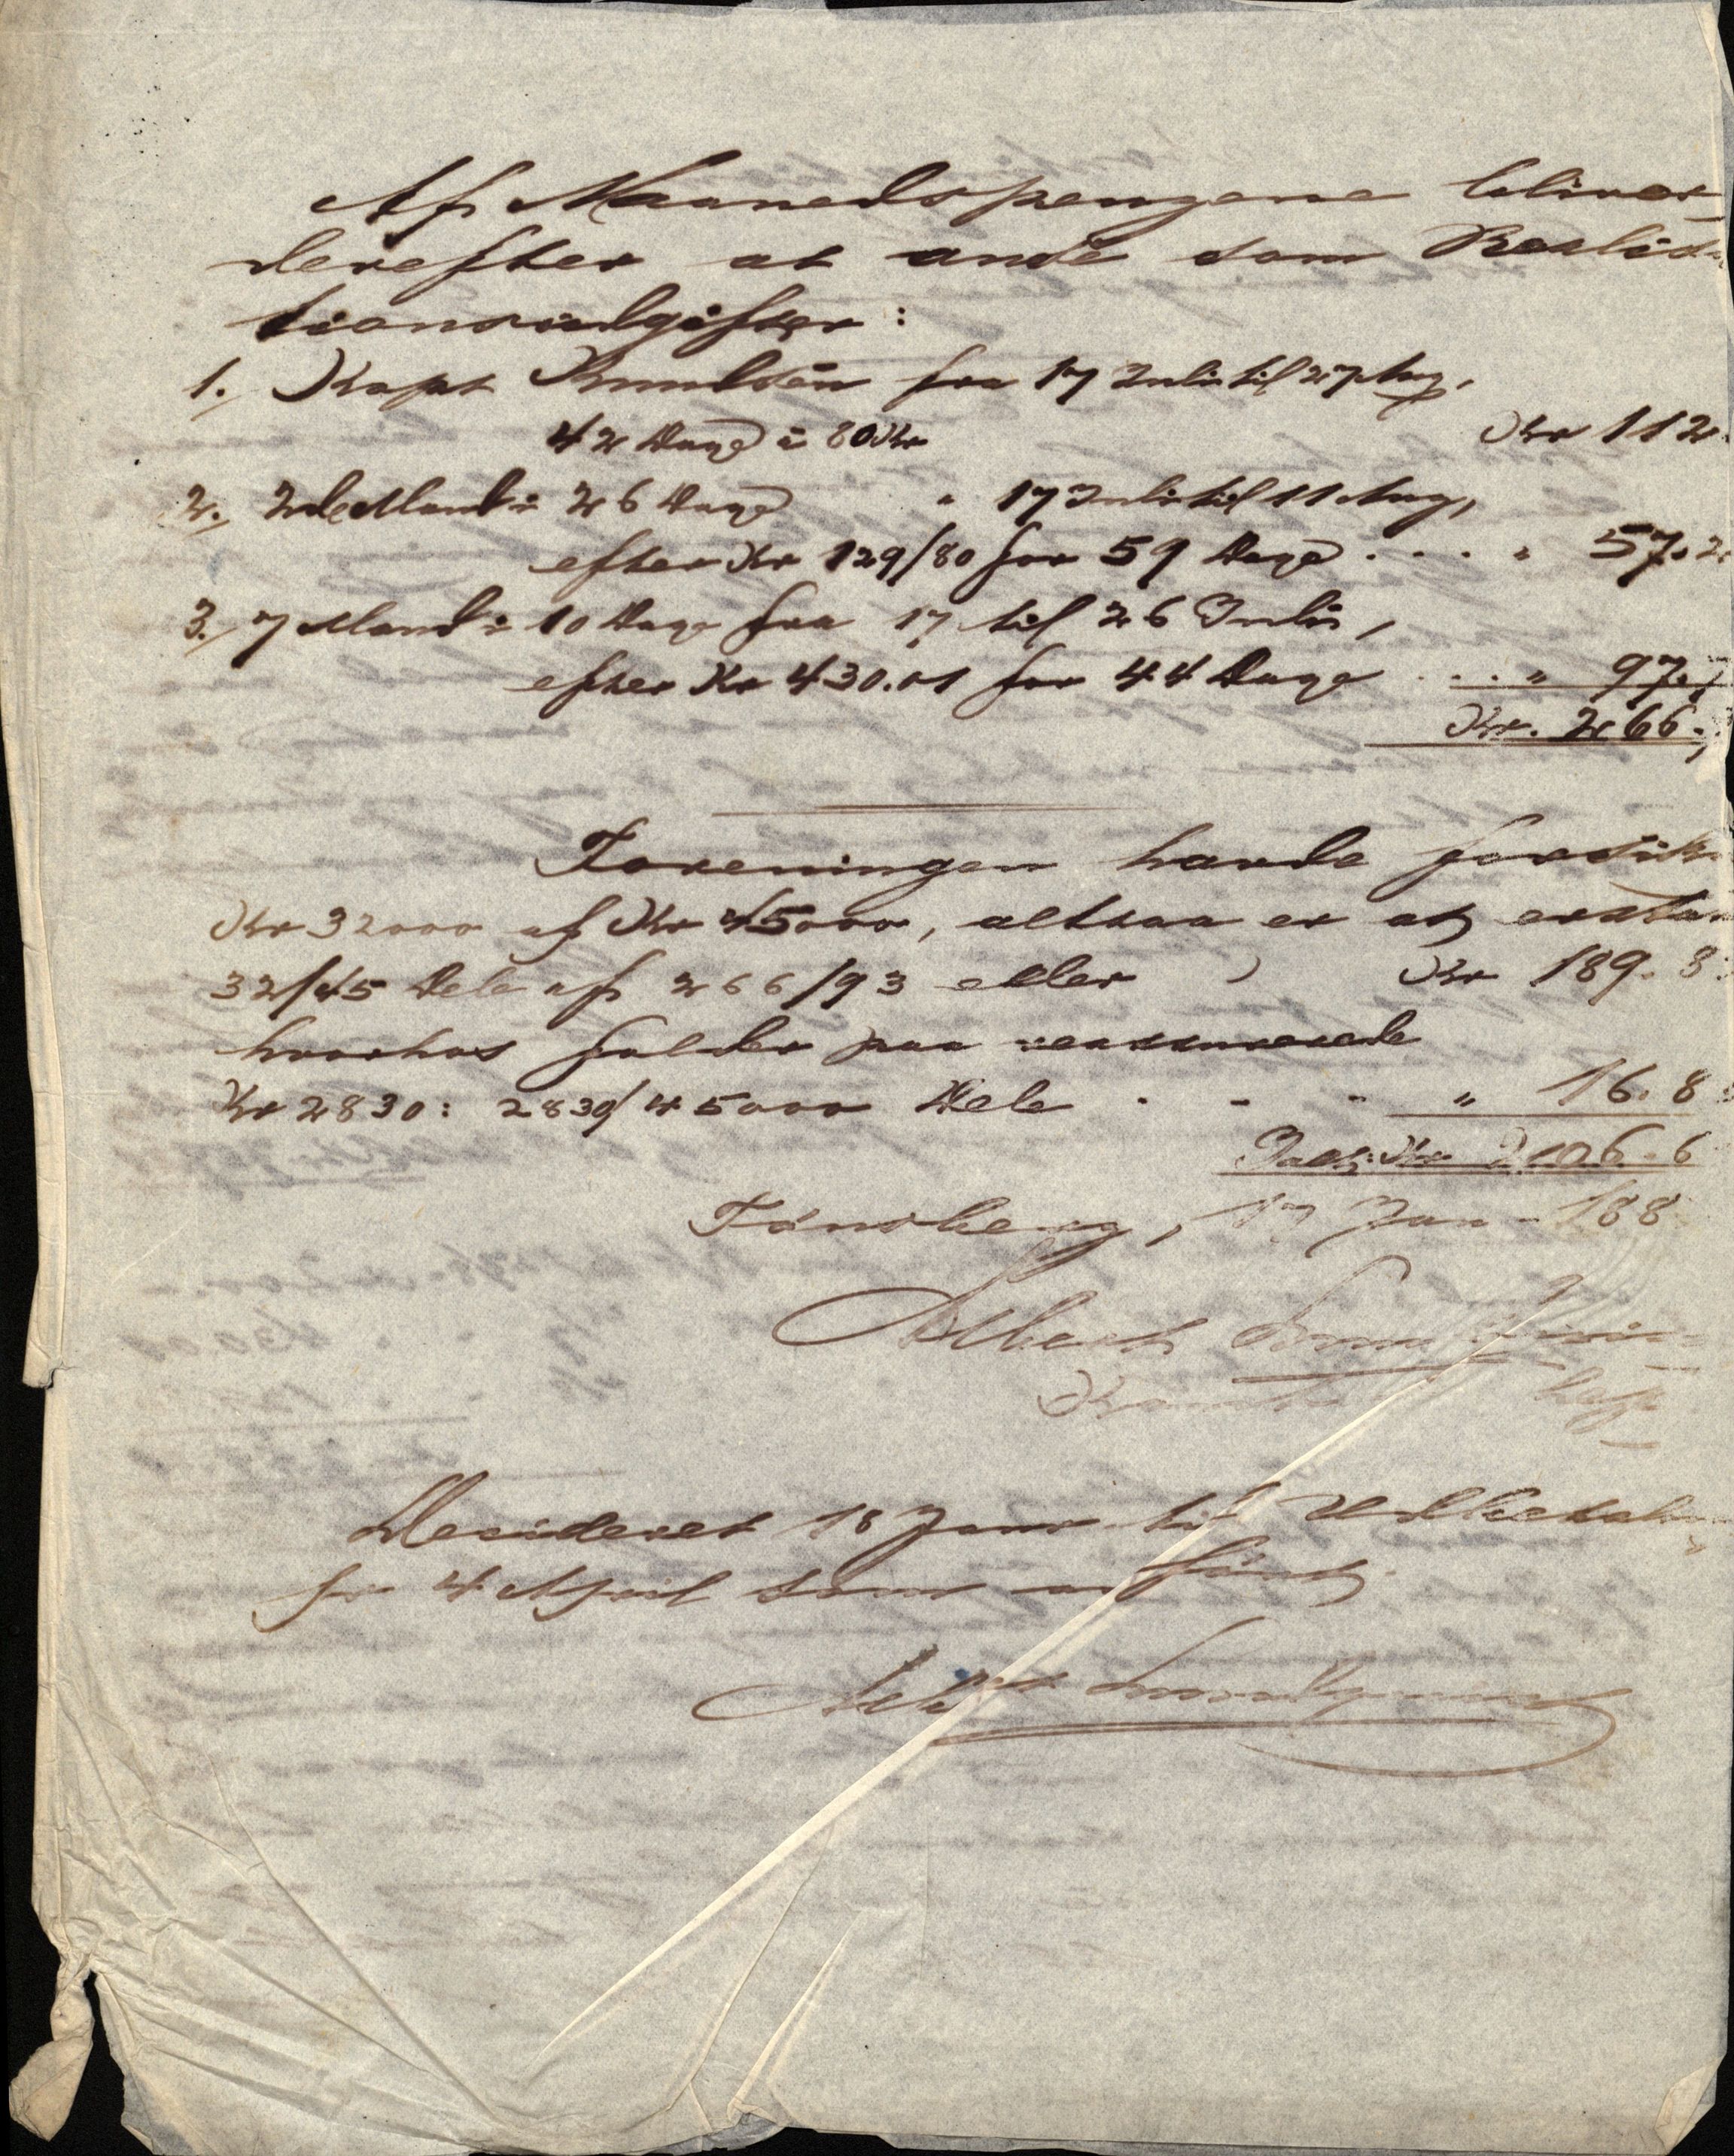 Af Maanedspengene bliver
derefter at ansé som Realisa
tionsudgifter:
1. Kapt Knudsen fra 17 Juli til 27 Aug,
42 Dage à 80 Kr Kr 112.
2. 2de Mand i 26 Dage " 17 Juli til 11 Aug,
efter Kr 129/80 for 59 Dage . . . . " 57.2
3. 7 Mand i 10 Dage fra 17 til 26 Juli,
efter Kr 430.01 for 44 Dage . . . " 97.7
Kr. 266.
Foreningen havde forsikr
Kr 32000 af Kr 45000, altsaa er at erstat
32/45 Dele af 266/93 eller Kr 189.8
hvorhos falder paa reassurerede
Kr 2830: 2830/45000 Dele . - - " 16.8
Kr 206.6
Tönsberg, 17 Jan - 188
Albert
Decideret 18 Janr til Udbetaling
pr 4 April som anført